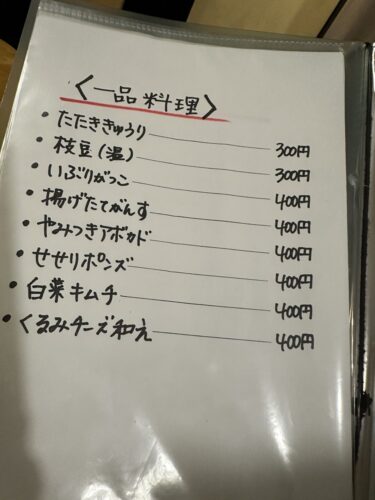 〈一品料理〉
・たたききゅうり 300円
・枝豆(温) 300円
・いぶりがっこ 400円
・揚げたてがんす 400円
・やみつきアボカド 400円
・せせりポンズ 400円
・白菜キムチ 400円
・くるみチーズ和え 400円